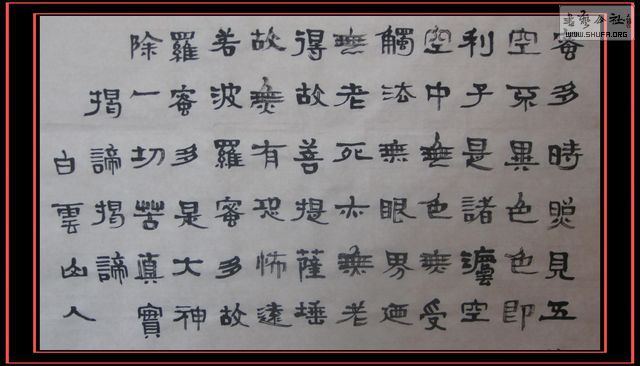 蜜多時照見五
空不異色色即
利子是諸灋空
空中無色無受
觸法無眼界迺
無老死亦無老
得故菩提薩埵
故無有恐怖遠
若波羅蜜多故
羅蜜多是大神
除一切苦真實
揭諦揭諦
白雲山人
WWW.SHUFA.ORG